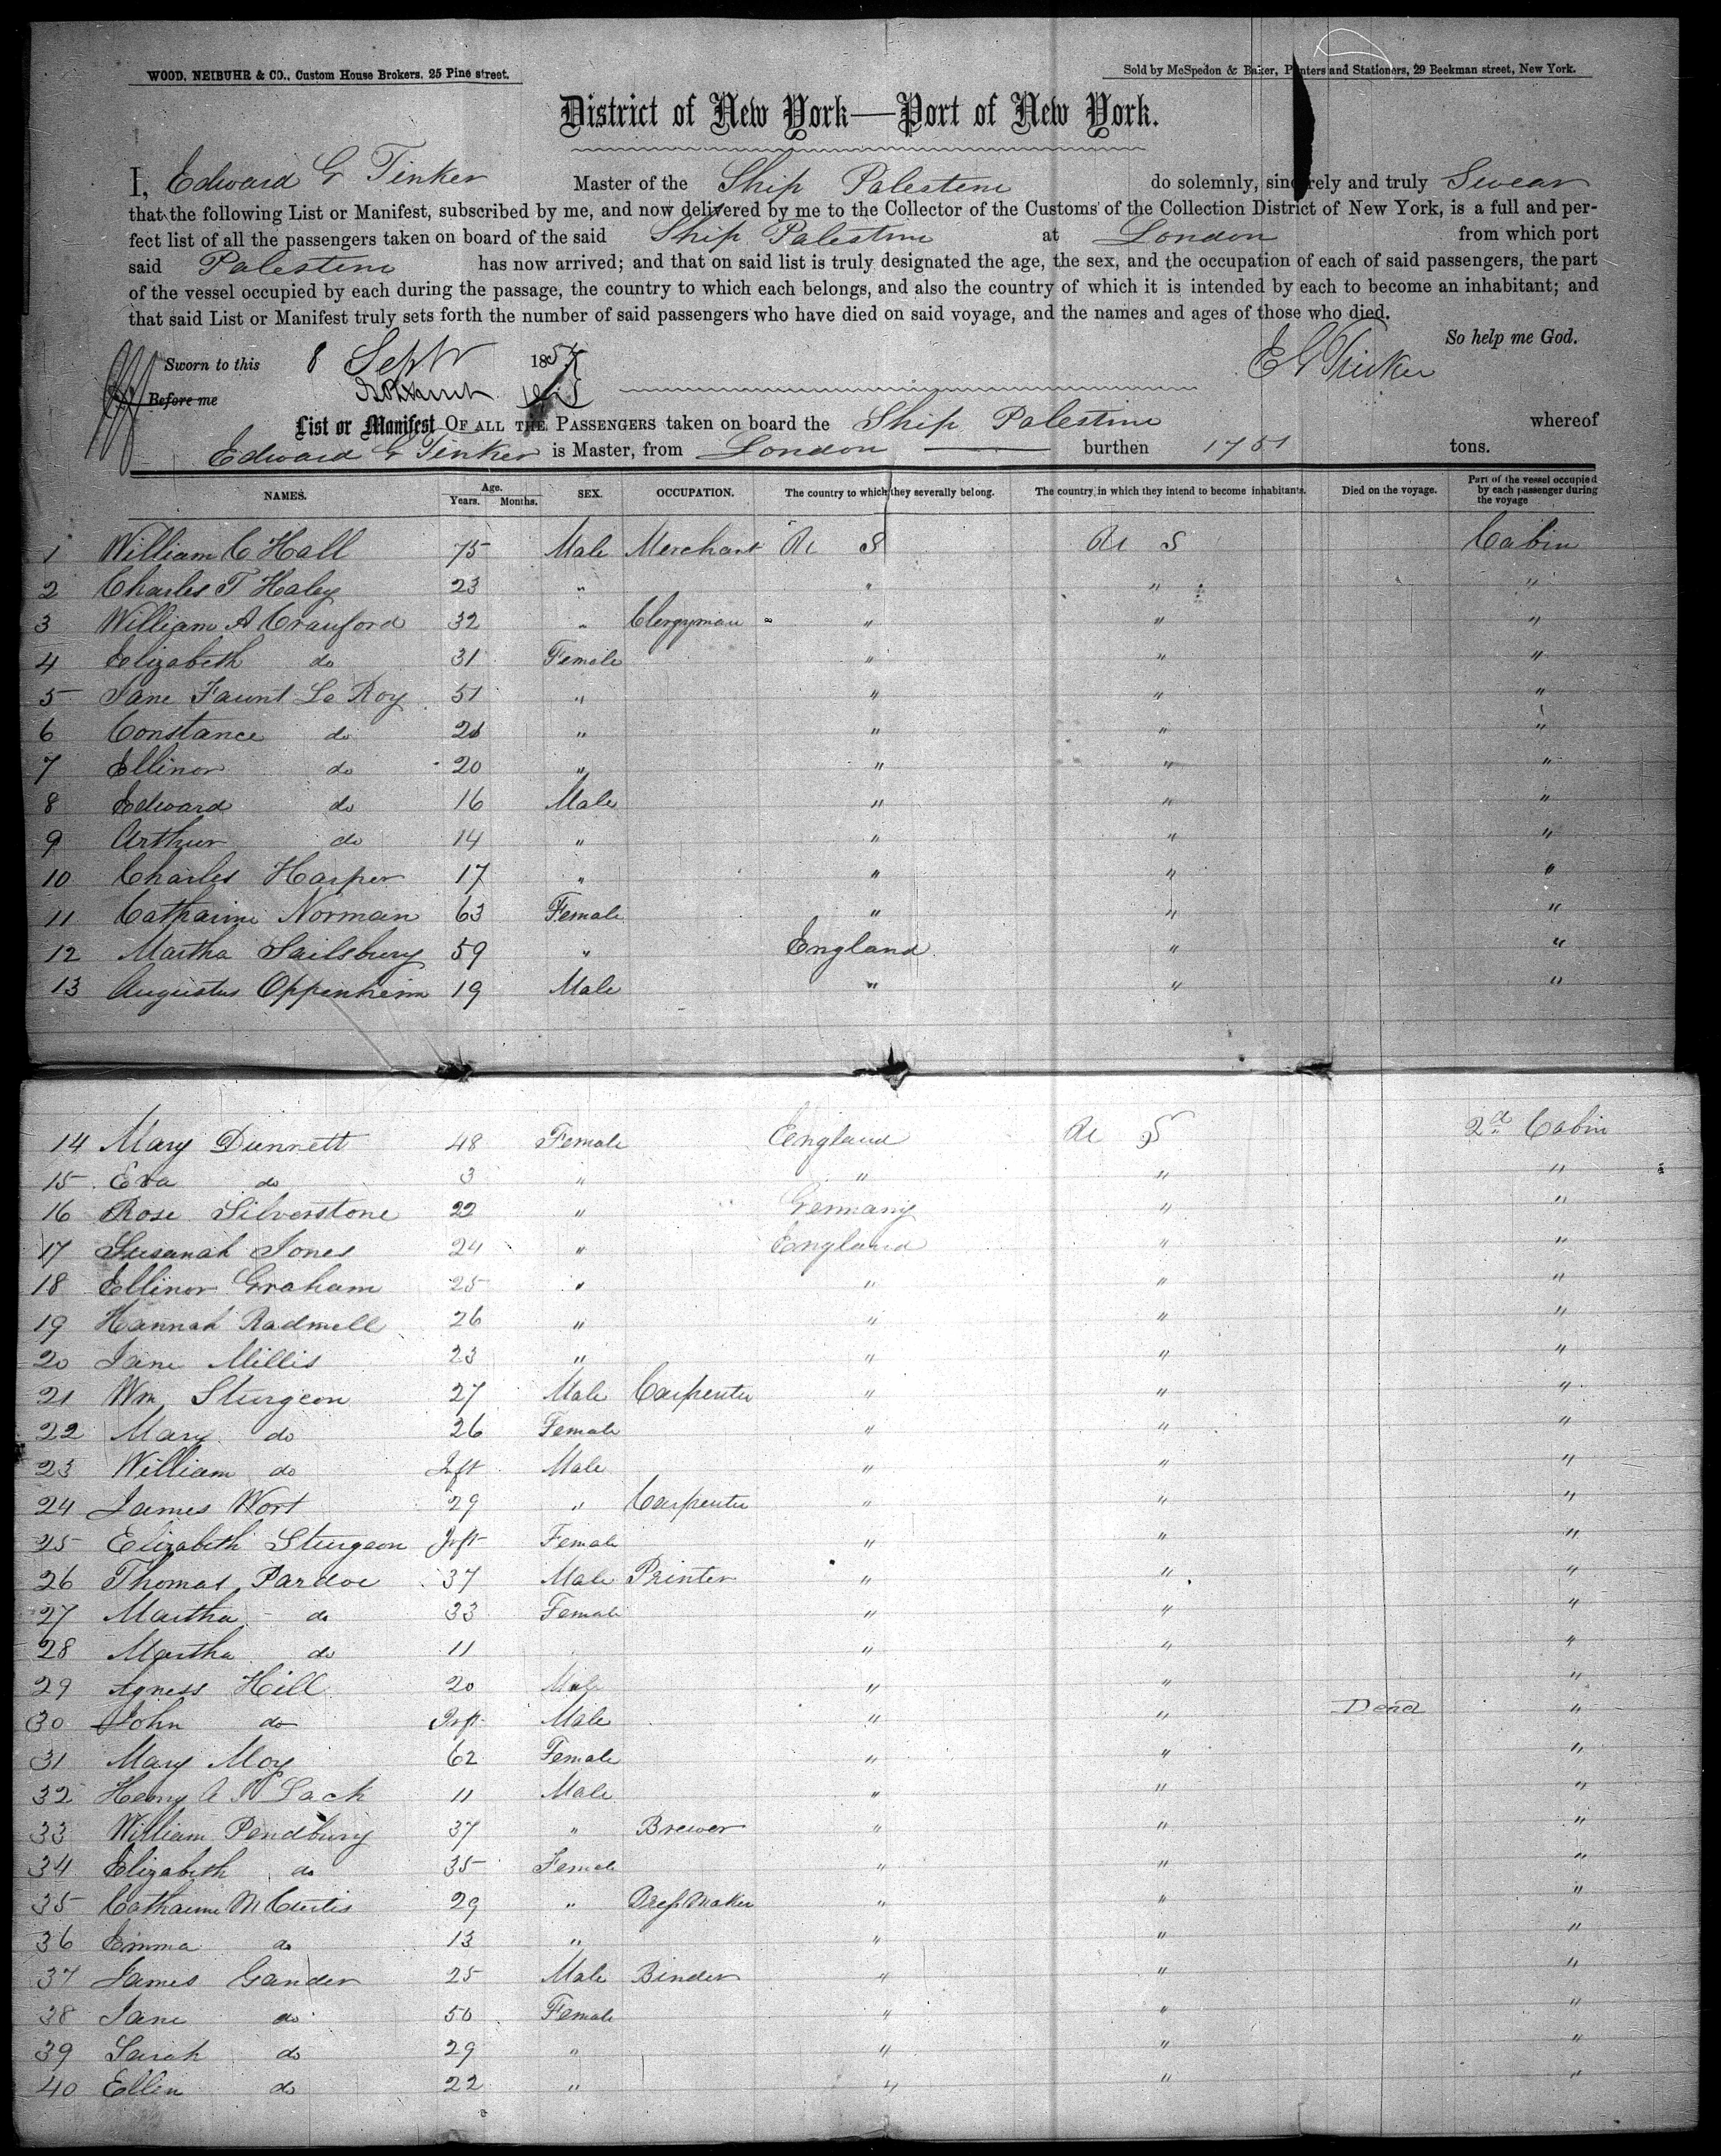 WOOD, NEIBUHR & CO., Custom House Brokers, 25 Pine street.
Sold by McSpedon & Baker, Printers and Stationers, 29 Beekman street, New York.
District of New York—Port of New York.
I, Edward G Tinker Master of the Ship Palestine do solemnly, sincerely and truly Swear
that the following List or Manifest, subscribed by me, and now delivered by me to the Collector of the Customs of the Collection District of New York, is a full and per-
fect list of all the passengers taken on board of the said Ship Palestine at London from which port
said Palestine has now arrived; and that on said list is truly designated the age, the sex, and the occupation of each of said passengers, the part
of the vessel occupied by each during the passage, the country to which each belongs, and also the country of which it is intended by each to become an inhabitant; and
that said List or Manifest truly sets forth the number of said passengers who have died on said voyage, and the names and ages of those who died.
So help me God.
Sworn to this 8 Septr 1857 E G Tinker
Before me
List or Manifest OF ALL THE PASSENGERS taken on board the Ship Palestine whereof
Edward G Tinker is Master, from London burthen 1751 tons.
NAMES. Age. Years. Months. SEX. OCCUPATION. The country to which they severally belong. The country in which they intend to become inhabitants. Died on the voyage. Part of the vessel occupied by each passenger during the voyage
1 William C Hall 75 Male Merchant U S U S Cabin
2 Charles T Haley 23 " " " "
3 William A Crauford 32 " Clergyman " " "
4 Elizabeth do 31 Female " " "
5 Jane Faunt Le Roy 51 " " " "
6 Constance do 26 " " " "
7 Ellinor do 20 " " " "
8 Edward do 16 Male " " "
9 Arthur do 14 " " " "
10 Charles Harper 17 " " " "
11 Catharine Norman 63 Female " " "
12 Martha Sailsbury 59 " England " "
13 Augustus Oppenheim 19 Male " " "
14 Mary Dunnett 48 Female England U S 2d Cabin
15 Eva do 3 " " " "
16 Rose Silverstone 22 " Germany " "
17 Susanah Jones 24 " England " "
18 Ellinor Graham 25 " " " "
19 Hannah Radmell 26 " " " "
20 Jane Millis 23 " " " "
21 Wm Sturgeon 27 Male Carpenter " " "
22 Mary do 26 Female " " "
23 William do Inft Male " " "
24 James Wort 29 " Carpenter " " "
25 Elizabeth Sturgeon Inft Female " " "
26 Thomas Pardoe 37 Male Printer " " "
27 Martha do 33 Female " " "
28 Martha do 11 " " "
29 Agness Hill 20 Male " " "
30 John do Inft Male " " Dead "
31 Mary Moy 62 Female " " "
32 Henry A Sack 11 Male " " "
33 William Pendbury 37 " Brewer " " "
34 Elizabeth do 35 Female " " "
35 Catharine M Curtis 29 " Dress Maker " " "
36 Emma do 13 " " " "
37 James Gander 25 Male Binder " " "
38 Jane do 50 Female " " "
39 Sarah do 29 " " " "
40 Ellen do 22 " " " "